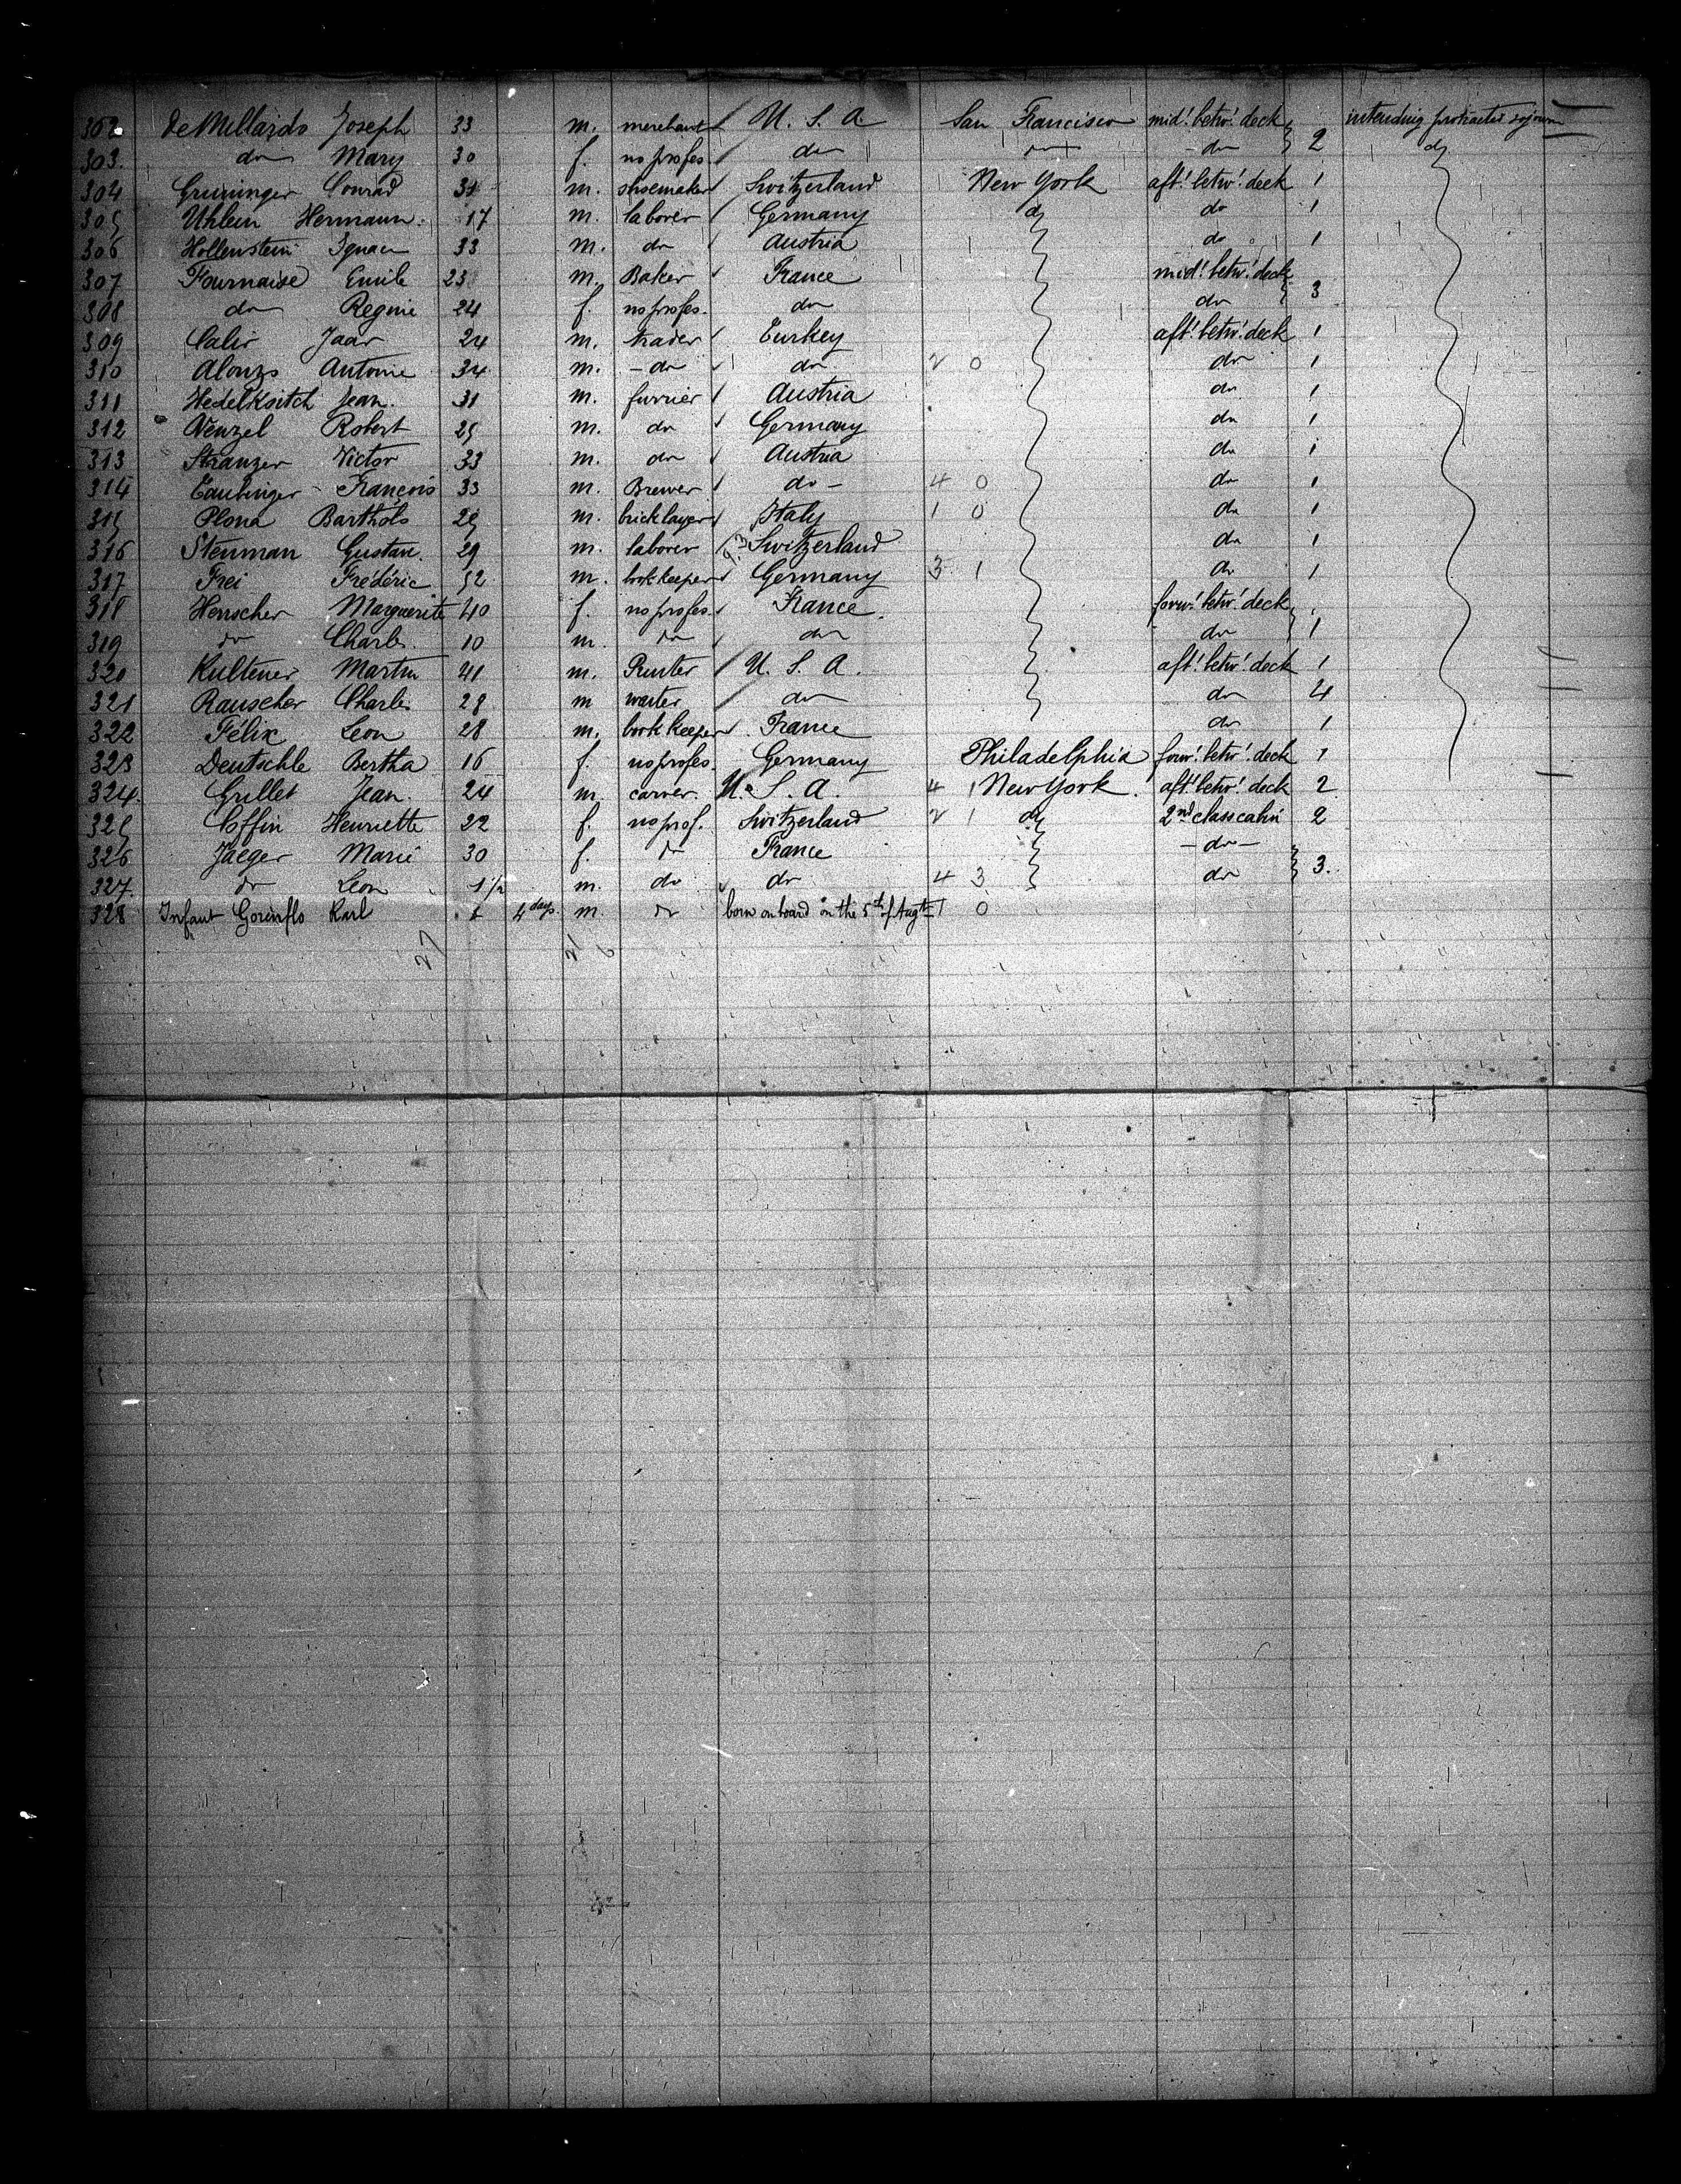 302 De Millards Joseph 33 m. merchant U. S. A. San Francisco mid! betw! deck intending protracted sojourn
303. do Mary 30 f. no profes. do do do 2 do
304 Gruninger Conrad 31 m. shoemaker Switzerland New York aft! betw! deck 1
305 Uhlein Hermann. 17 m. laborer Germany do do 1
306 Hollenstein Ignace 33 m. do Austria do 1
307 Fournaise Emile 23 m. Baker France mid! betw! deck
308 do Regine 24 f. no profes. do do 3
309 Calir Jaar 24 m. trader Turkey aft! betw! deck 1
310 Alonzo Antoine 34 m. - do do 2 0 do 1
311 Hedelksitch Jean. 31 m. furrier Austria do 1
312 Wenzel Robert 25 m. do Germany do 1
313 Stranzer Victor 33 m. do Austria do 1
314 Taubinger François 33 m. Brewer do - 4 0 do 1
315 Plona Barthólo 25 m. bricklayer Italy 1 0 do 1
316 Stenman Gustave. 29 m. laborer Switzerland do 1
317 Frei Frédéric 52 m. bookkeeper Germany 3 1 do 1
318 Herrscher Marguerite 40 f. no profes. France. forw! betw! deck
319 do Charles. 10 m. do do do 1
320 Kultener Martin 41 m. Printer U. S. A. aft! betw! deck 1
321 Rauscher Charles 28 m waiter do do 4
322 Félix Leon 28 m. bookkeeper France do 1
323 Deutschle Bertha 16 f. no profes. Germany Philadelphia forw! betw! deck 1
324. Grillet Jean. 24 m. carver. U. S. A. 4 1 New York. aft! betw! deck 2
325 Coffin Henriette 22 f. no prof. Switzerland 2 1 do 2nd class cabin 2
326 Jaeger Marie 30 f. do France - do -
327. do Leon 1 1/2 m. do do 4 3 do 3.
328 Infant Gorinflo Karl 4 days. m. do born on board on the 5th of Augt 1 0
27 21 6